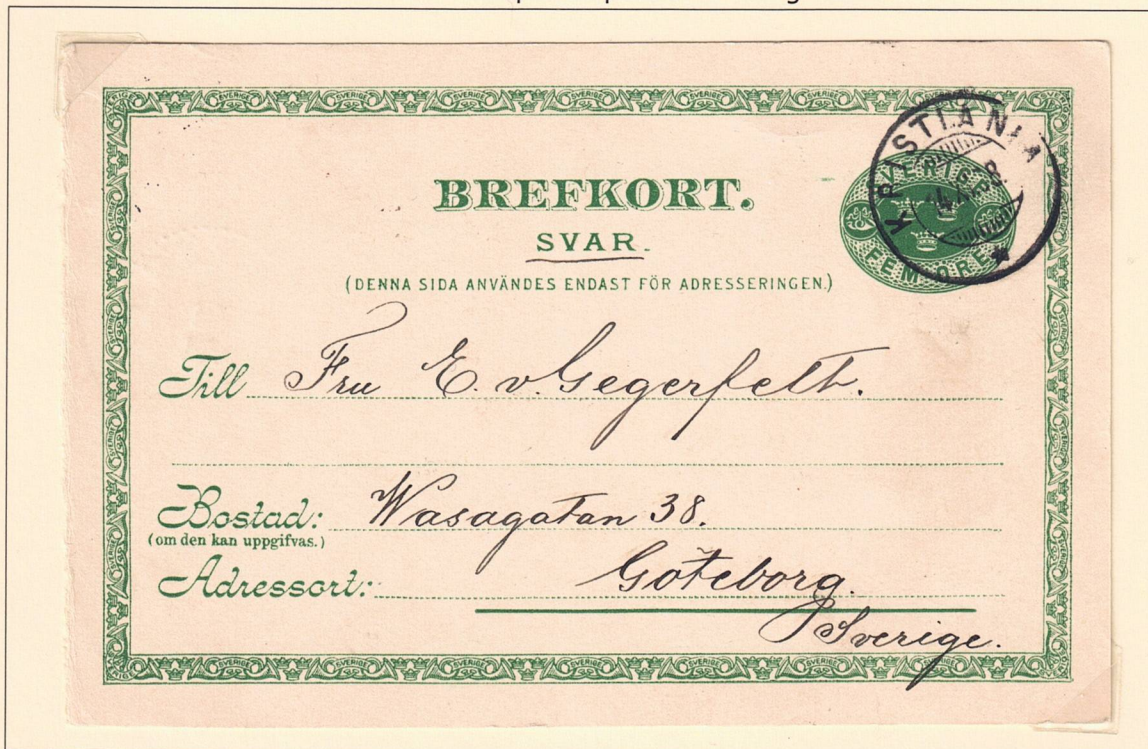 BREFKORT.
SVAR.
(DENNA SIDA ANVÄNDES ENDAST FÖR ADRESSERINGEN.)
KRISTIANIA
SVERIGE
FEM ÖRE
Till Fru E. v Gegerfelt.
Bostad: Wasagatan 38.
(om den kan uppgifvas.)
Adressort: Göteborg.
Sverige.